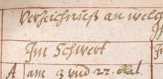 Verzeichnuß an welch
Im Schwert
A am 3 vnd 22. tal